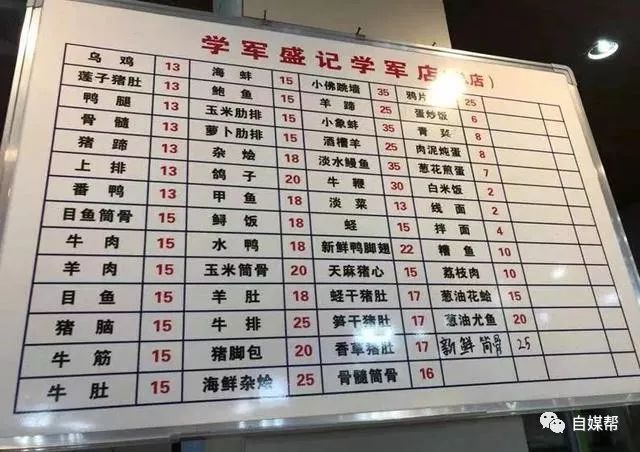 学军盛记学军店(店)
乌鸡 13 海蚌 15 小佛跳墙 35 鸦片 25
莲子猪肚 13 鲍鱼 15 羊蹄 25 蛋炒饭 6
鸭腿 13 玉米肋排 15 小象蚌 35 青菜 8
骨髓 13 萝卜肋排 15 酒糟羊 25 肉泥炖蛋 8
猪蹄 13 杂烩 18 淡水鳗鱼 35 葱花煎蛋 7
上排 13 鸽子 20 牛鞭 30 白米饭 2
番鸭 13 甲鱼 18 淡菜 13 线面 2
目鱼筒骨 15 鲟饭 15 蛏 15 拌面 4
牛肉 15 水鸭 18 新鲜鸭脚翅 22 糟鱼 10
羊肉 15 玉米筒骨 20 天麻猪心 15 荔枝肉 10
目鱼 15 羊肚 18 蛏干猪肚 17 葱油花蛤 15
猪脑 15 牛排 25 笋干猪肚 17 葱油尤鱼 20
牛筋 15 猪脚包 20 香草猪肚 17 新鲜筒骨 25
牛肚 15 海鲜杂烩 25 骨髓筒骨 16
自媒帮